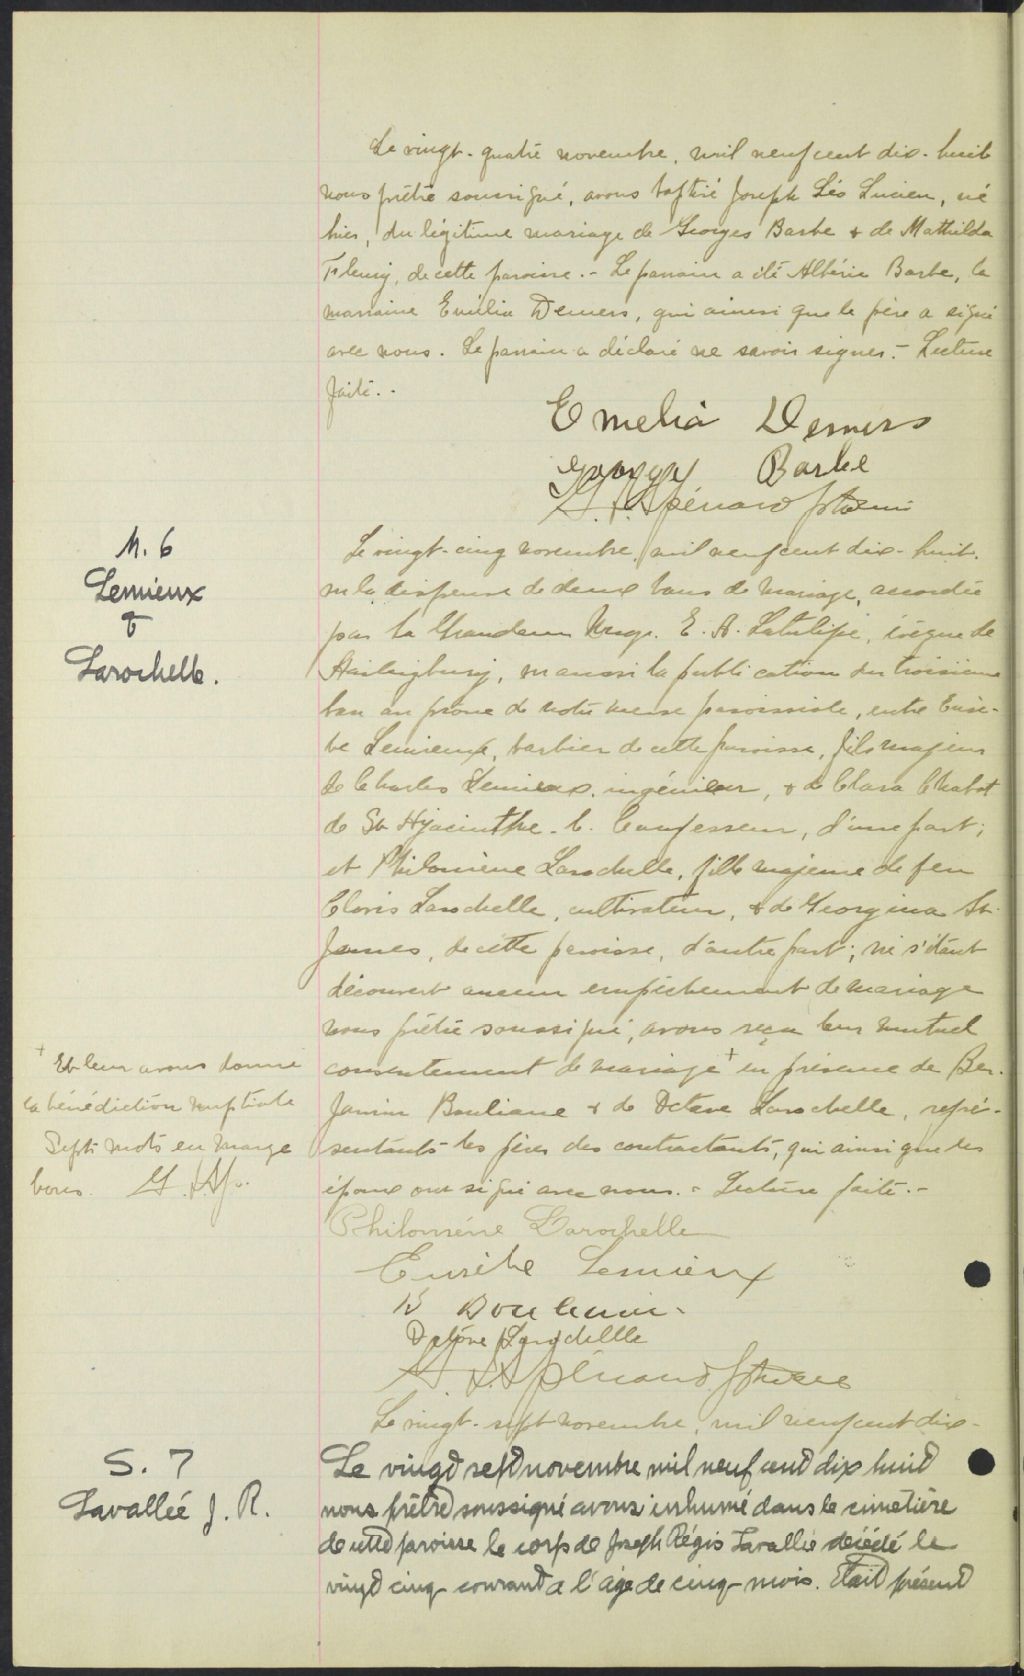 Le vingt-quatre novembre, mil neuf cent dix-huit
nous prêtre soussigné, avons baptisé Joseph Léo Lucien, né
hier, du légitime mariage de Georges Barbe & de Mathilda
Fleury, de cette paroisse.- Le parrain a été Albéric Barbe, la
marraine Emilia Demers, qui ainsi que le père a signé
avec nous. Le parrain a déclaré ne savoir signer.- Lecture
faite.-
Emelia Demers
George Barbe
M. 6
Lemieux
&
Larochelle.
Le vingt-cinq novembre, mil neuf cent dix-huit.
vu la dispense de deux bans de mariage, accordée
par Sa Grandeur Mgr. E. A. Latulipe, évêque de
Haileybury, vu aussi la publication du troisième
ban au prône de notre messe paroissiale, entre Eusè-
be Lemieux, barbier de cette paroisse, fils majeur
de Charles Lemieux, ingénieur, & de Clara Chabot
de St Hyacinthe-l. Confesseur, d'une part;
et Philomène Larochelle, fille majeure de feu
Cloris Larochelle, cultivateur, & de Georgina St-
James, de cette paroisse, d'autre part; ne s'étant
découvert aucun empêchement de mariage
nous prêtre soussigné, avons reçu leur mutuel
consentement de mariage + en présence de Ben-
jamin Bouliane & de Octave Larochelle, repré-
sentants les pères des contractants, qui ainsi que les
époux ont signé avec nous.- Lecture faite.-
+ Et leur avons donné
la bénédiction nuptiale
Sept mots en marge
bons.
Philomène Larochelle
Eusèbe Lemieux
B
Octave Larochelle
Le vingt-sept novembre, mil neuf cent dix-
S. 7
Lavallée J. R.
Le vingt sept novembre mil neuf cent dix huit
nous prêtre soussigné avons inhumé dans le cimetière
de cette paroisse le corps de Joseph Régis Lavallée décédé le
vingt cinq courant a l'âge de cinq mois. Etait présent